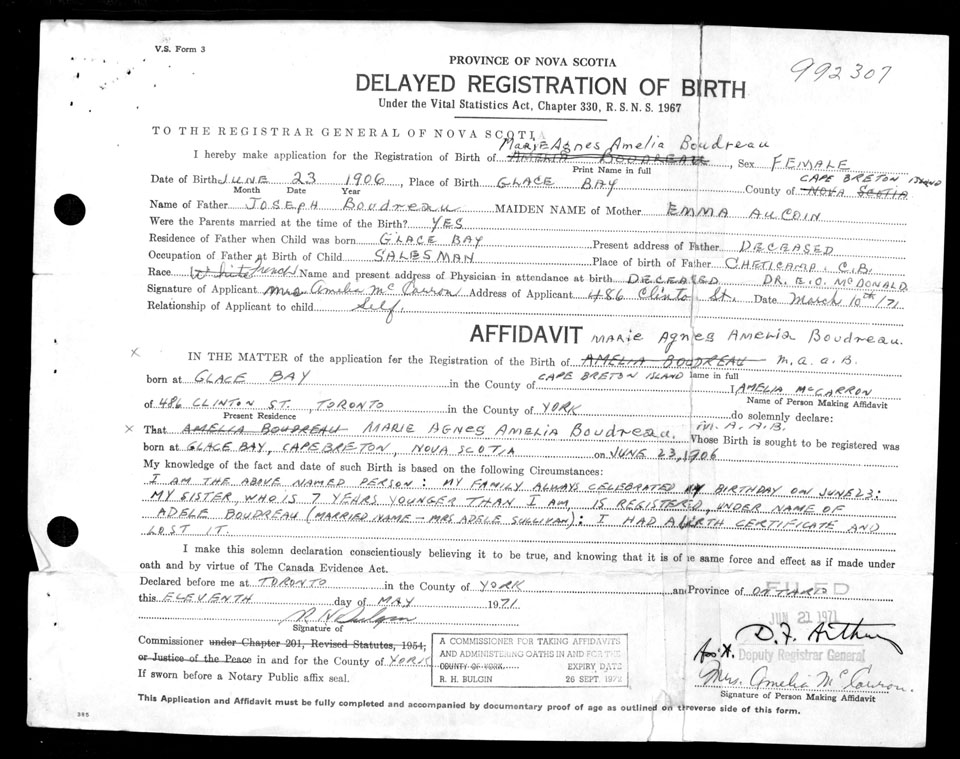 V.S. Form 3
PROVINCE OF NOVA SCOTIA
992307
DELAYED REGISTRATION OF BIRTH
Under the Vital Statistics Act, Chapter 330, R. S. N. S. 1967
TO THE REGISTRAR GENERAL OF NOVA SCOTIA
Marie Agnes Amelia Boudreau
I hereby make application for the Registration of Birth of AMELIA BOUDREAU, Sex FEMALE
Print Name in full
CAPE BRETON ISLAND
Date of Birth JUNE 23 1906, Place of Birth GLACE BAY County of NOVA SCOTIA
Month Date Year
Name of Father JOSEPH Boudreau MAIDEN NAME of Mother EMMA AUCOIN
Were the Parents married at the time of the Birth? YES
Residence of Father when Child was born GLACE BAY Present address of Father DECEASED
Occupation of Father at Birth of Child SALESMAN Place of birth of Father CHETICAMP. C.B.
Race White French Name and present address of Physician in attendance at birth DECEASED DR. E.O. McDONALD
Signature of Applicant Mrs Amelia McCarron Address of Applicant 486 Clinton St. Date March 10th/71
Relationship of Applicant to child Self.
AFFIDAVIT MARIE Agnes AMELIA Boudreau.
x IN THE MATTER of the application for the Registration of the Birth of AMELIA BOUDREAU M.a.a.B.
born at GLACE BAY in the County of CAPE BRETON ISLAND Name in full I AMELIA McCARRON
Name of Person Making Affidavit
of 486 CLINTON ST. TORONTO in the County of YORK do solemnly declare:
Present Residence
M.A.A.B.
x That AMELIA BOUDREAU MARIE AGNES AMELIA BOUDREAU. Whose Birth is sought to be registered was
born at GLACE BAY, CAPE BRETON, NOVA SCOTIA on JUNE 23, 1906
My knowledge of the fact and date of such Birth is based on the following Circumstances:
I AM THE ABOVE NAMED PERSON: MY FAMILY ALWAYS CELEBRATED MY BIRTHDAY ON JUNE 23:
MY SISTER, WHO IS 7 YEARS YOUNGER THAN I AM, IS REGISTERED, UNDER NAME OF
ADELE BOUDREAU (MARRIED NAME - MRS ADELE SULLIVAN): I HAD A BIRTH CERTIFICATE AND
LOST IT.
I make this solemn declaration conscientiously believing it to be true, and knowing that it is of the same force and effect as if made under
oath and by virtue of The Canada Evidence Act.
Declared before me at TORONTO in the County of YORK and Province of ONTARIO
FILED
this ELEVENTH day of MAY 1971
JUN 21 1971
R H Bulgin
Signature of
D.F. Arthur
Commissioner under Chapter 201, Revised Statutes, 1954,
or Justice of the Peace in and for the County of YORK
If sworn before a Notary Public affix seal.
A COMMISSIONER FOR TAKING AFFIDAVITS
AND ADMINISTERING OATHS IN AND FOR THE
COUNTY OF YORK. EXPIRY DATE
R. H. BULGIN 26 SEPT. 1972
Deputy Registrar General
Mrs. Amelia McCarron.
Signature of Person Making Affidavit
This Application and Affidavit must be fully completed and accompanied by documentary proof of age as outlined on the reverse side of this form.
385